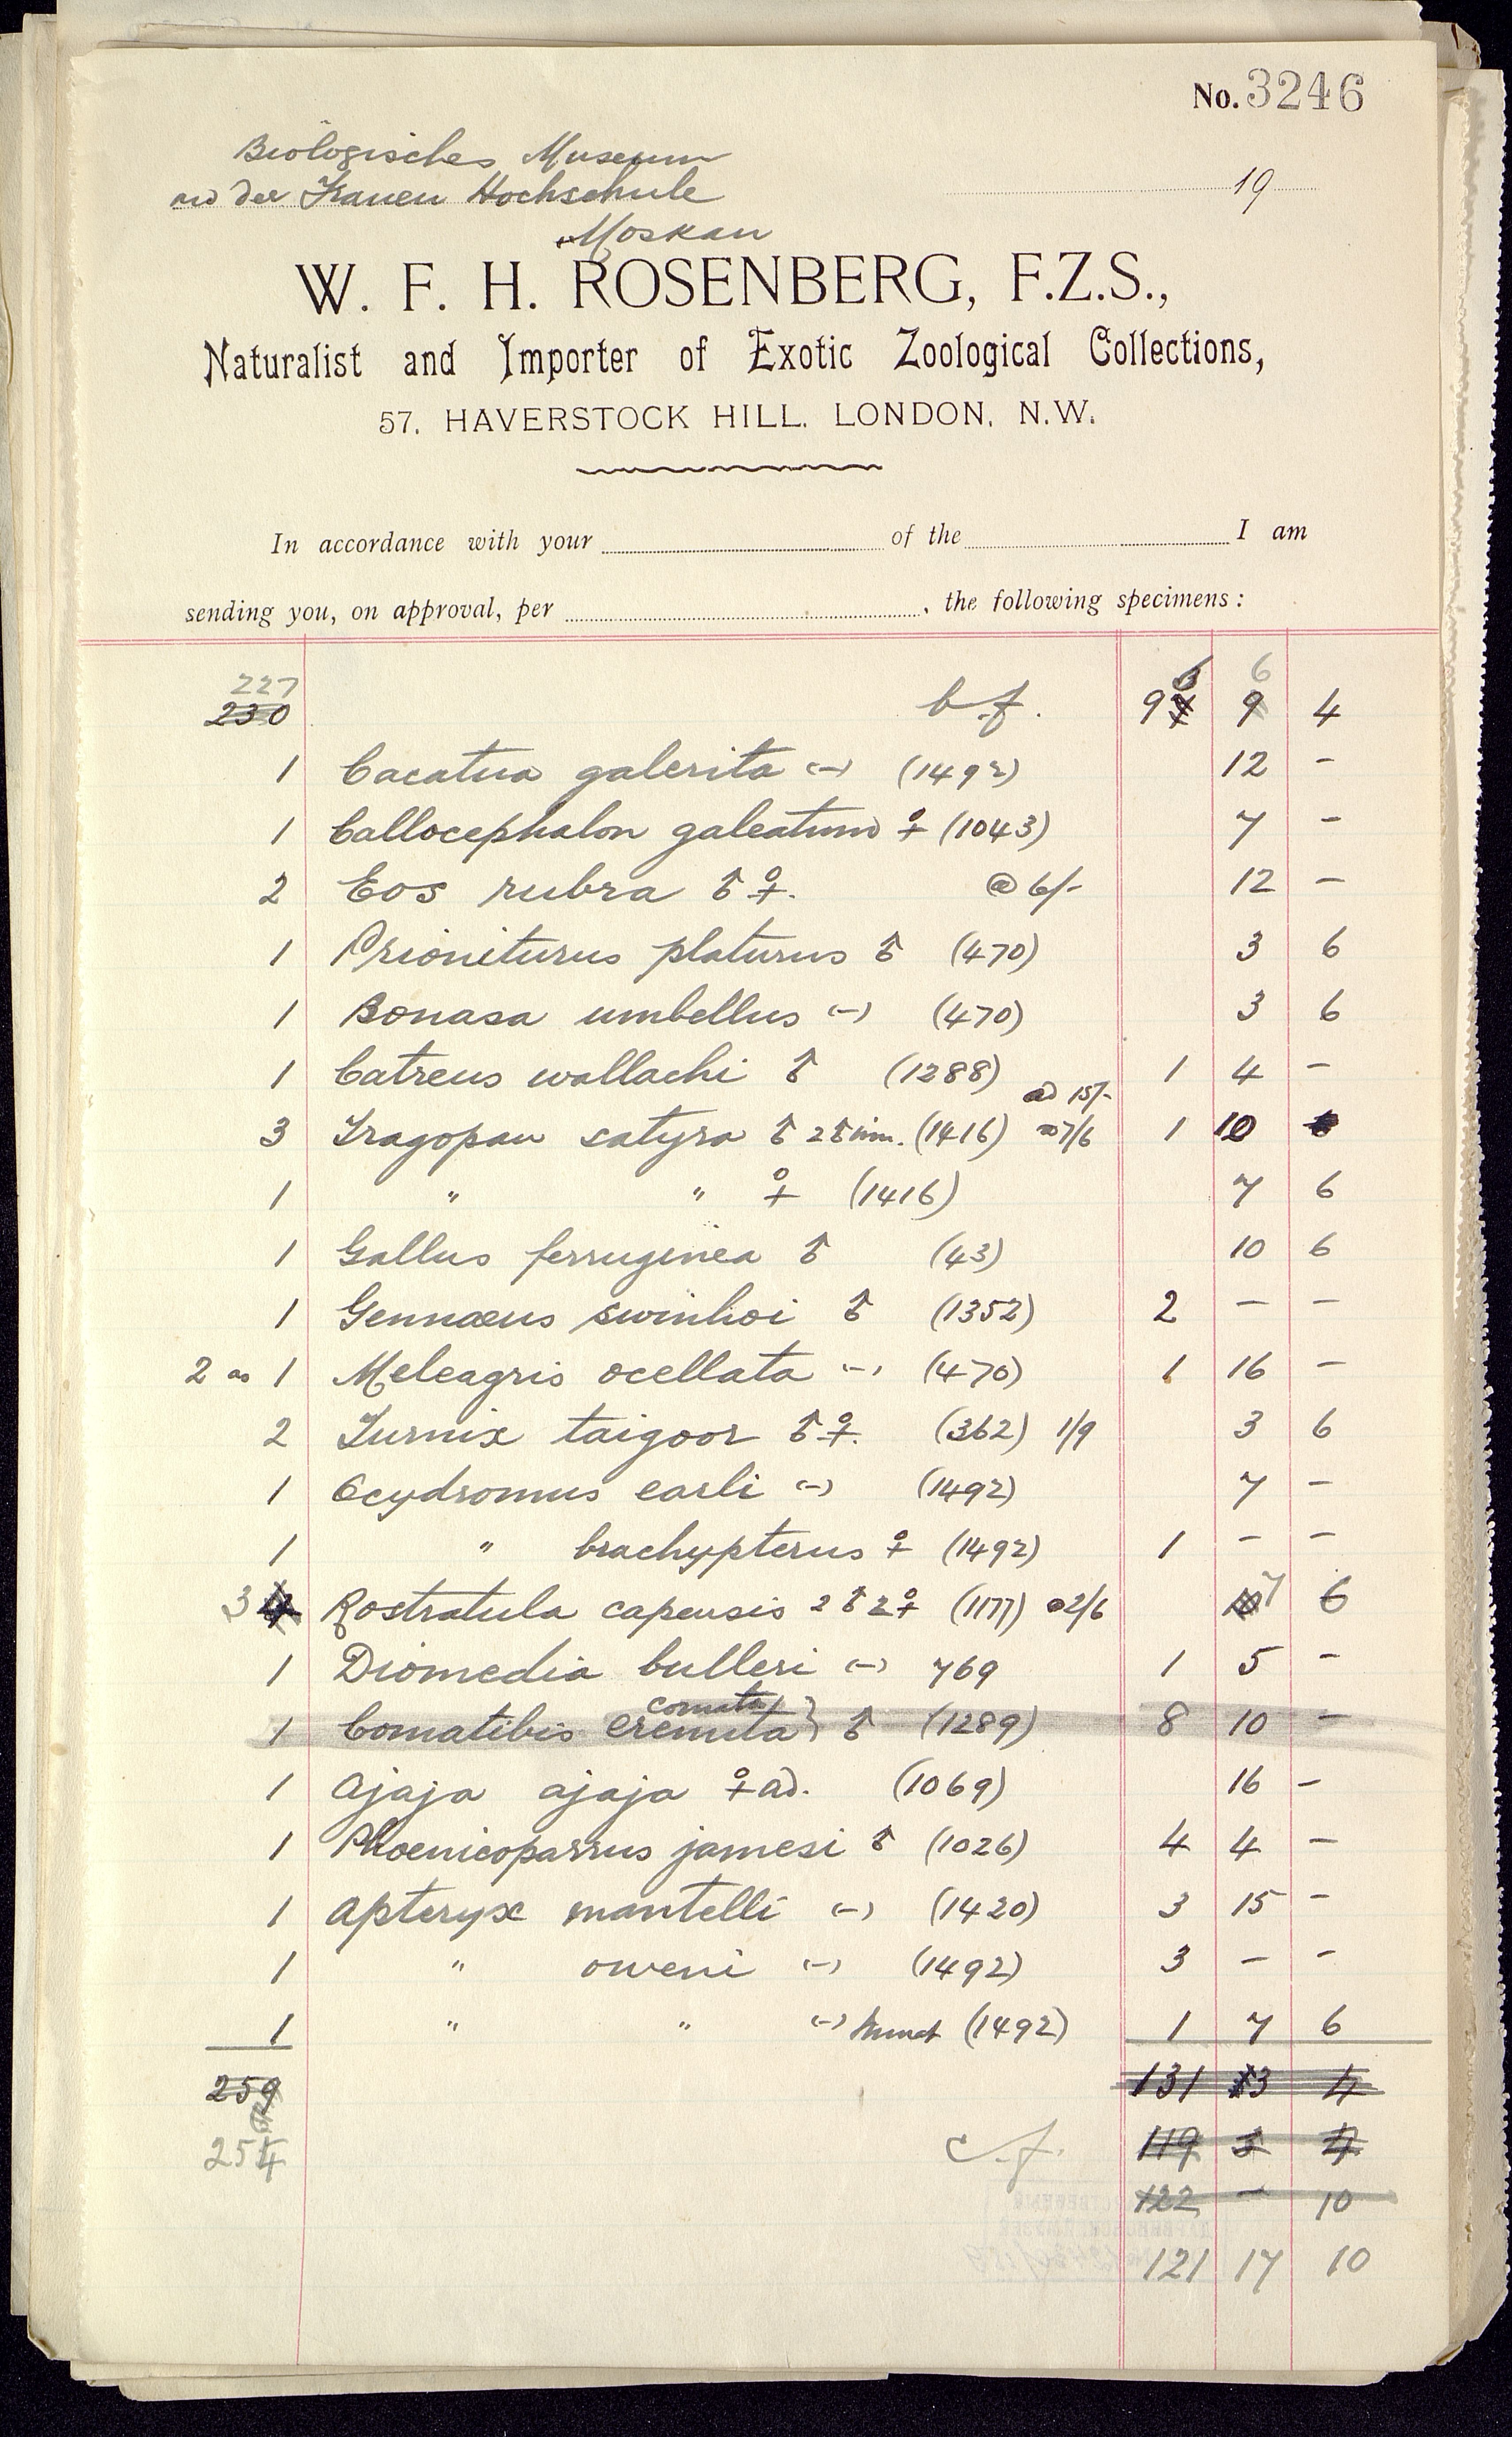 No. 3246
Biologisches Museum
an der Frauen Hochschule
19
Moskau
W. F. H. ROSENBERG, F.Z.S.,
Naturalist and Importer of Exotic Zoological Collections,
57, HAVERSTOCK HILL, LONDON, N.W.
In accordance with your of the I am
sending you, on approval, per , the following specimens:
227 6 6
230 b.f. 97 9 4
1 Cacatua galerita (-) (1492) 12 -
1 Callocephalon galeatum ♀ (1043) 7 -
2 Eos rubra ♂ ♀. @ 6/- 12 -
1 Prioniturus platurus ♂ (470) 3 6
1 Bonasa umbellus (-) (470) 3 6
1 Catreus wallachi ♂ (1288) 1 4 -
ad 15/-
3 Tragopan satyra ♂ 2♂ imm. (1416) 7/6 1 10
1 " " ♀ (1416) 7 6
1 Gallus ferruginea ♂ (43) 10 6
1 Gennaeus swinhoi ♂ (1352) 2 - -
2 as 1 Meleagris ocellata (-) (470) 1 16 -
2 Turnix taigoor ♂ ♀. (362) 1/9 3 6
1 Ocydromus earli (-) (1492) 7 -
1 " brachypterus ♀ (1492) 1 - -
3 4 Rostratula capensis 2 ♂ 2 ♀ (1177) @ 2/6 10 7 6
1 Diomedia bulleri (-) 769 1 5 -
comata
1 Comatibis eremita } ♂ (1289) 8 10 -
1 Ajaja ajaja ♀ ad. (1069) 16 -
1 Phoenicoparrus jamesi ♂ (1026) 4 4 -
1 Apteryx mantelli (-) (1420) 3 15 -
1 " oweni (-) (1492) 3 - -
1 " " (-) (1492) 1 7 6
259 131 13 4
254 c.f. 119 5 4
122 - 10
121 17 10